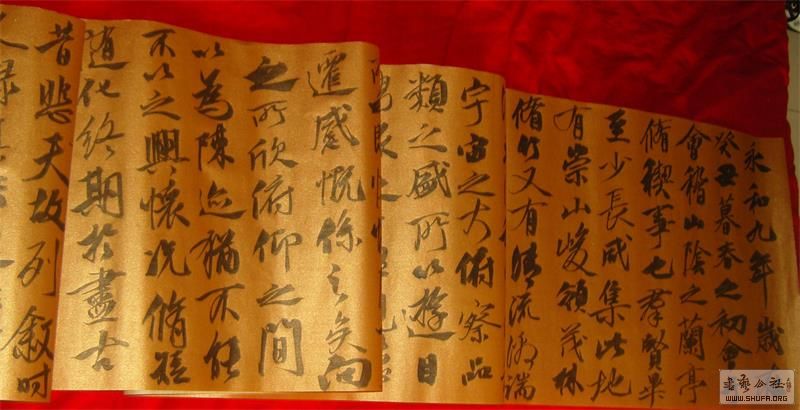 永和九年歲
癸丑暮春之初會
會稽山陰之蘭亭
脩禊事也羣賢畢
至少長咸集此地
有崇山峻領茂林
脩竹又有清流激湍
宇宙之大俯察品
類之盛所以遊目
遷感慨係之矣向
之所欣俯仰之間
以為陳迹猶不能
不以之興懷況脩短
隨化終期於盡古
昔悲夫故列敘時
书艺公社
WWW.SHUFA.ORG